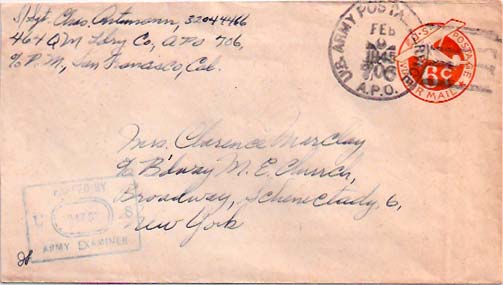 S/Sgt. Chas. Artmann, 32044466
464 Q M Ldry Co, APO 706,
c/o P.M., San Francisco, Cal.
U.S. ARMY POSTAL
FEB
1945
706
A.P.O.
U.S. POSTAGE
6¢
AIR MAIL
Mrs. Clarence Marclay
c/o B'dway M. E. Church,
Broadway, Schenectady, 6,
New York
PASSED BY
U S
ARMY EXAMINER